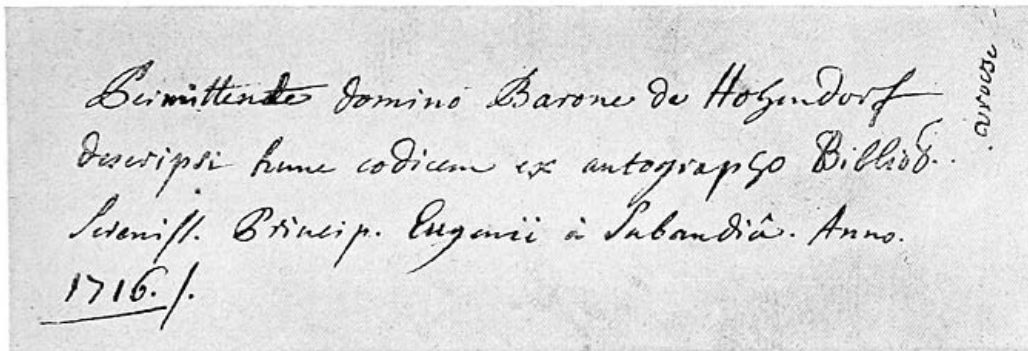 Permittente domino Barone de Hohendorf
descripsi hunc codicem ex autographo Biblioth.
Sereniss. Princip. Eugenii à Sabaudiâ. Anno.
1716. /.